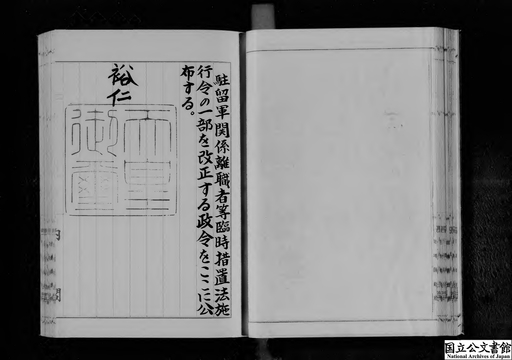 駐留軍関係離職者等臨時措置法施
行令の一部を改正する政令をここに公
布する。
裕仁
天皇
御璽
国立公文書館
National Archives of Japan